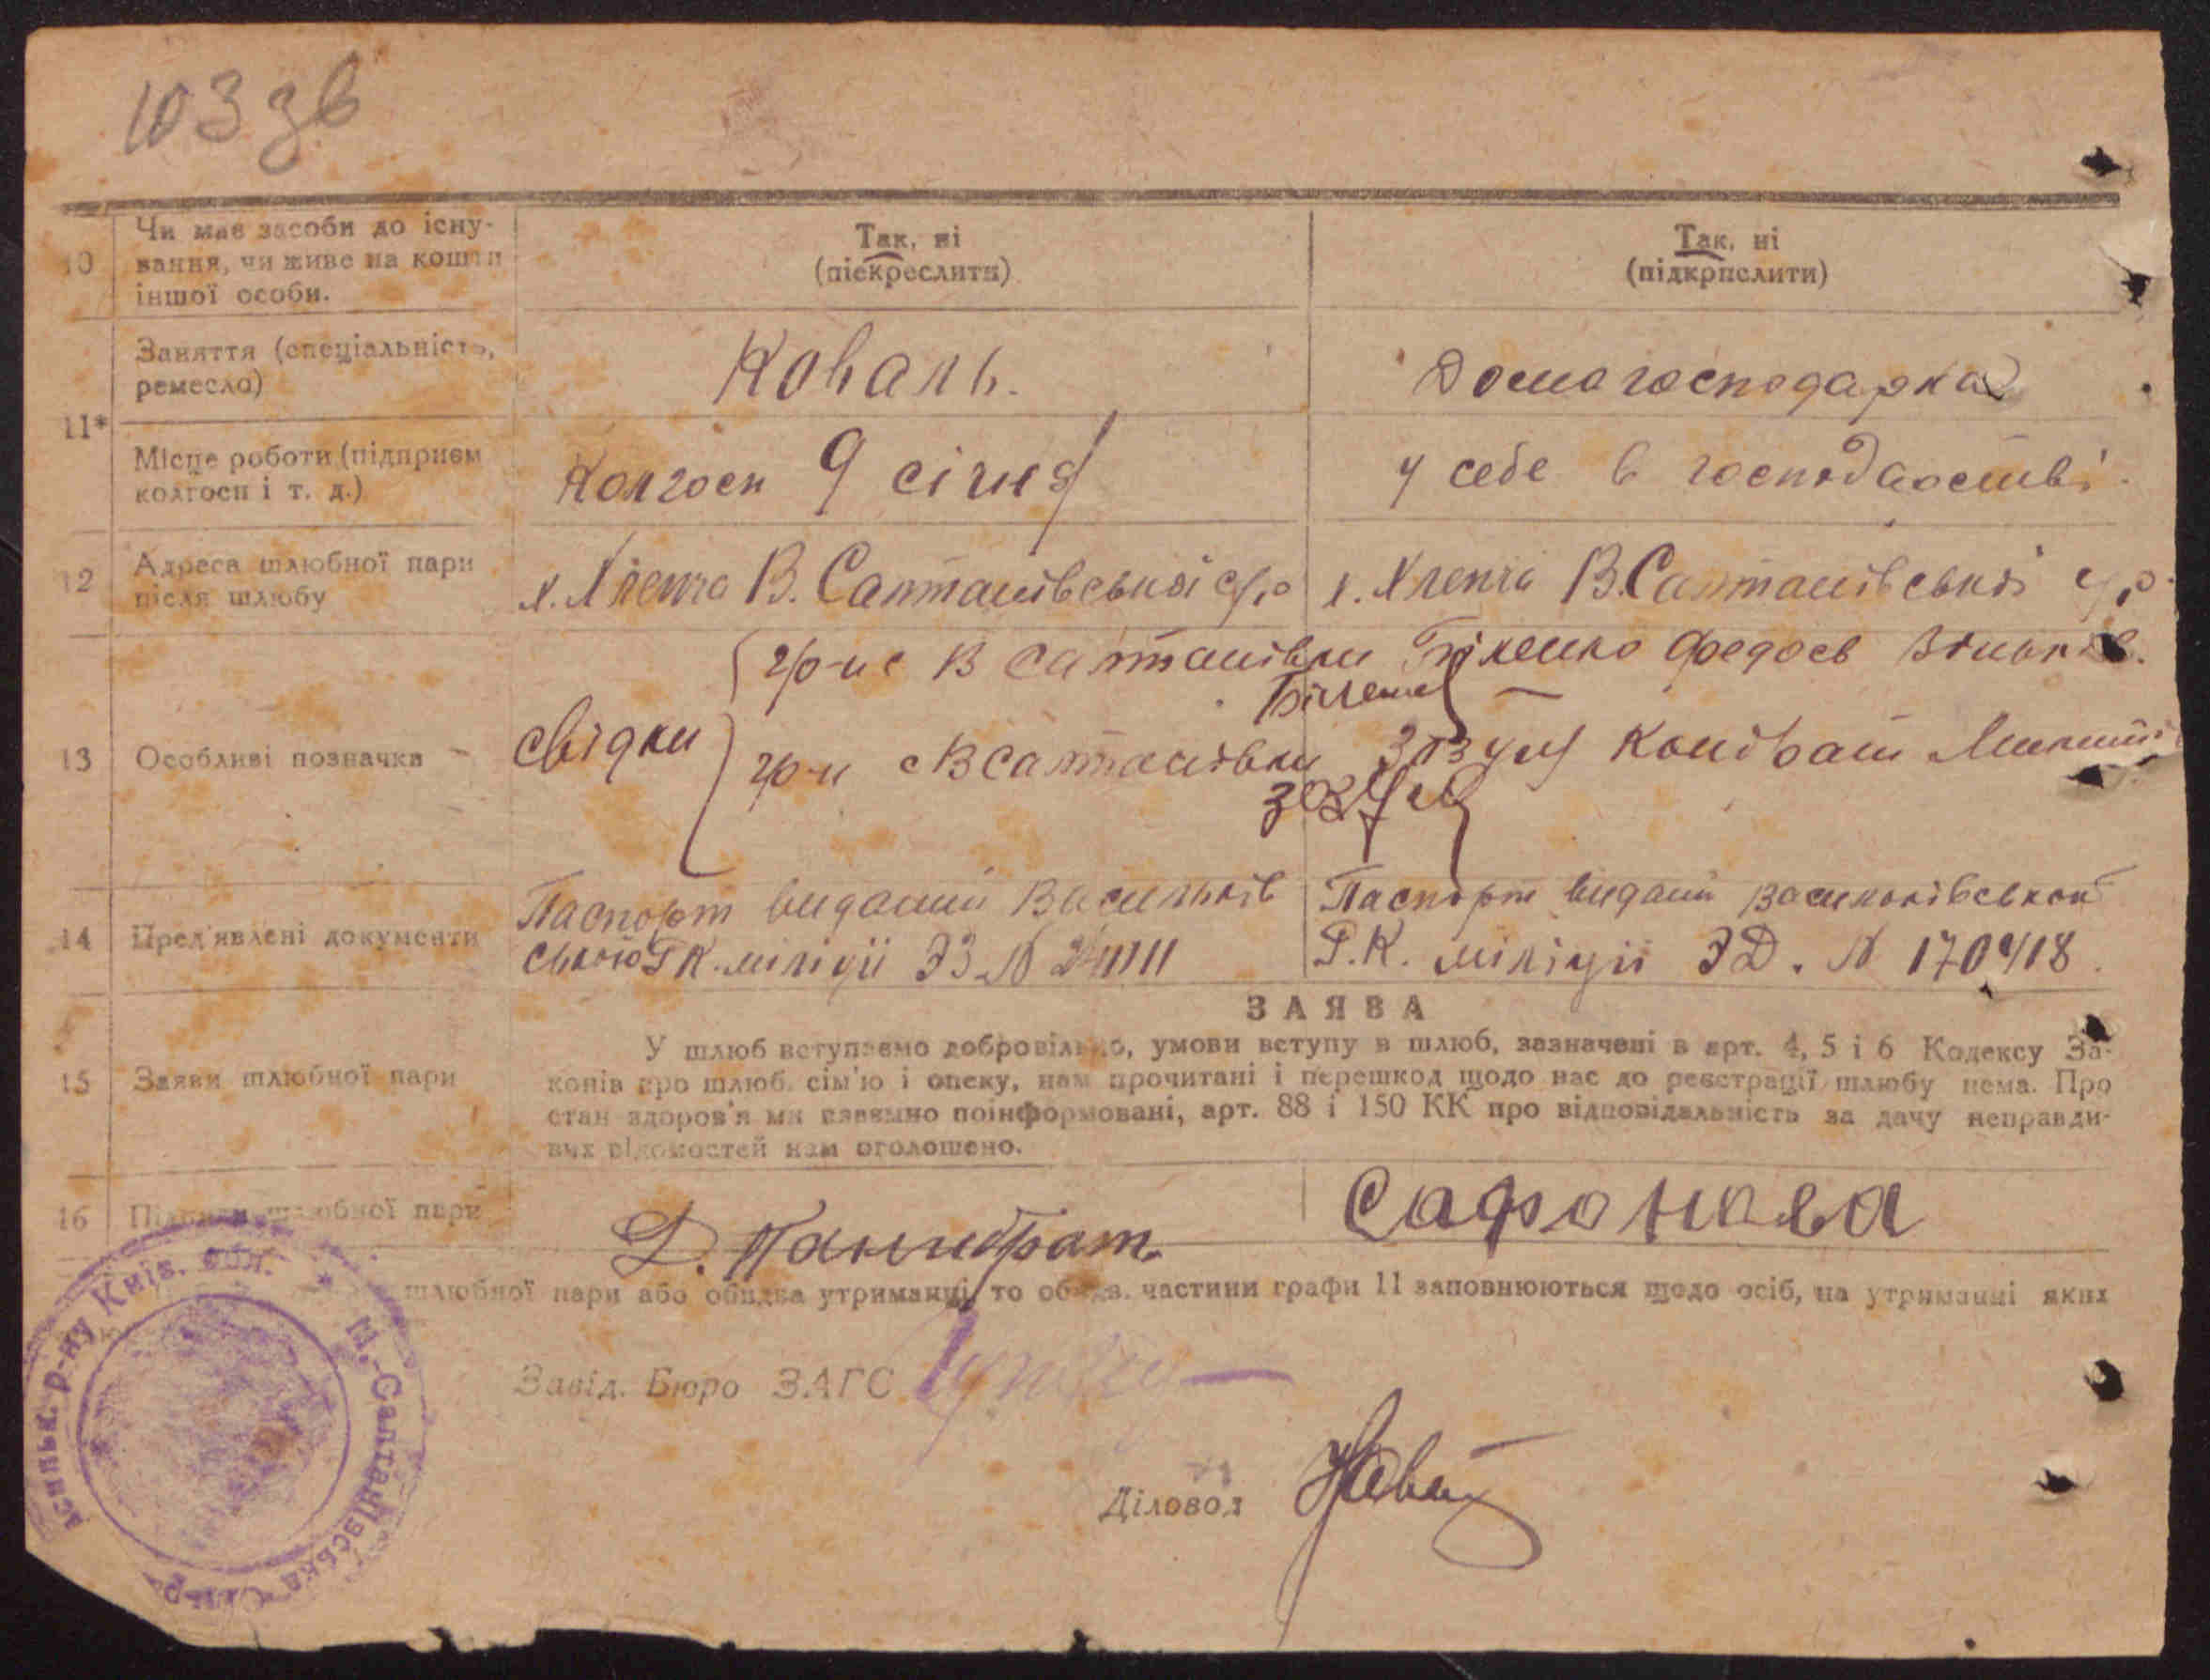 103 зв
10 Чи має засоби до існу-
вання, чи живе на кошти
іншої особи.
Так, ні
(підкреслити)
Так, ні
(підкрислити)
11*
Заняття (спеціальність,
ремесло)
Коваль.
Домагосподарка
Місце роботи (підприєм
колгосп і т. д.)
Колгосп 9 січня
у себе в господарстві.
12 Адреса шлюбної пари
після шлюбу
х. Хлепча В. Салтанівської с/р
х. Хлепча В. Салтанівської с/р
13 Особливі позначки
свідки
гр-н с В Салтанівки Біленко Федось
Біленко
гр-н с В Салтанівки Зозуля Кондрат
Зозуля
14 Пред'явлені документи
Паспорт виданий Васильків
ською Р.К. міліції ЭЗ №
Паспорт видани Васильківською
Р.К. міліції ЭД. № 170418
15 Заяви шлюбної пари
ЗАЯВА
У шлюб вступаємо добровільно, умови вступу в шлюб, зазначені в арт. 4, 5 і 6 Кодексу За-
конів про шлюб, сім'ю і опеку, нам прочитані і перешкод щодо нас до реєстрації шлюбу нема. Про
стан здоров'я ми взаємно поінформовані, арт. 88 і 150 КК про відповідальність за дачу неправди-
вих відомостей нам оголошено.
16 Підписи шлюбної пари
Д. Панибрат.
Сафонова
шлюбної пари або обидва утриманці, то обидв. частини графи 11 заповнюються щодо осіб, на утриманні яких
Завід. Бюро ЗАГС
Діловод
М.-Салтанівська сіль-р
асильк. р-ну Київ. обл.